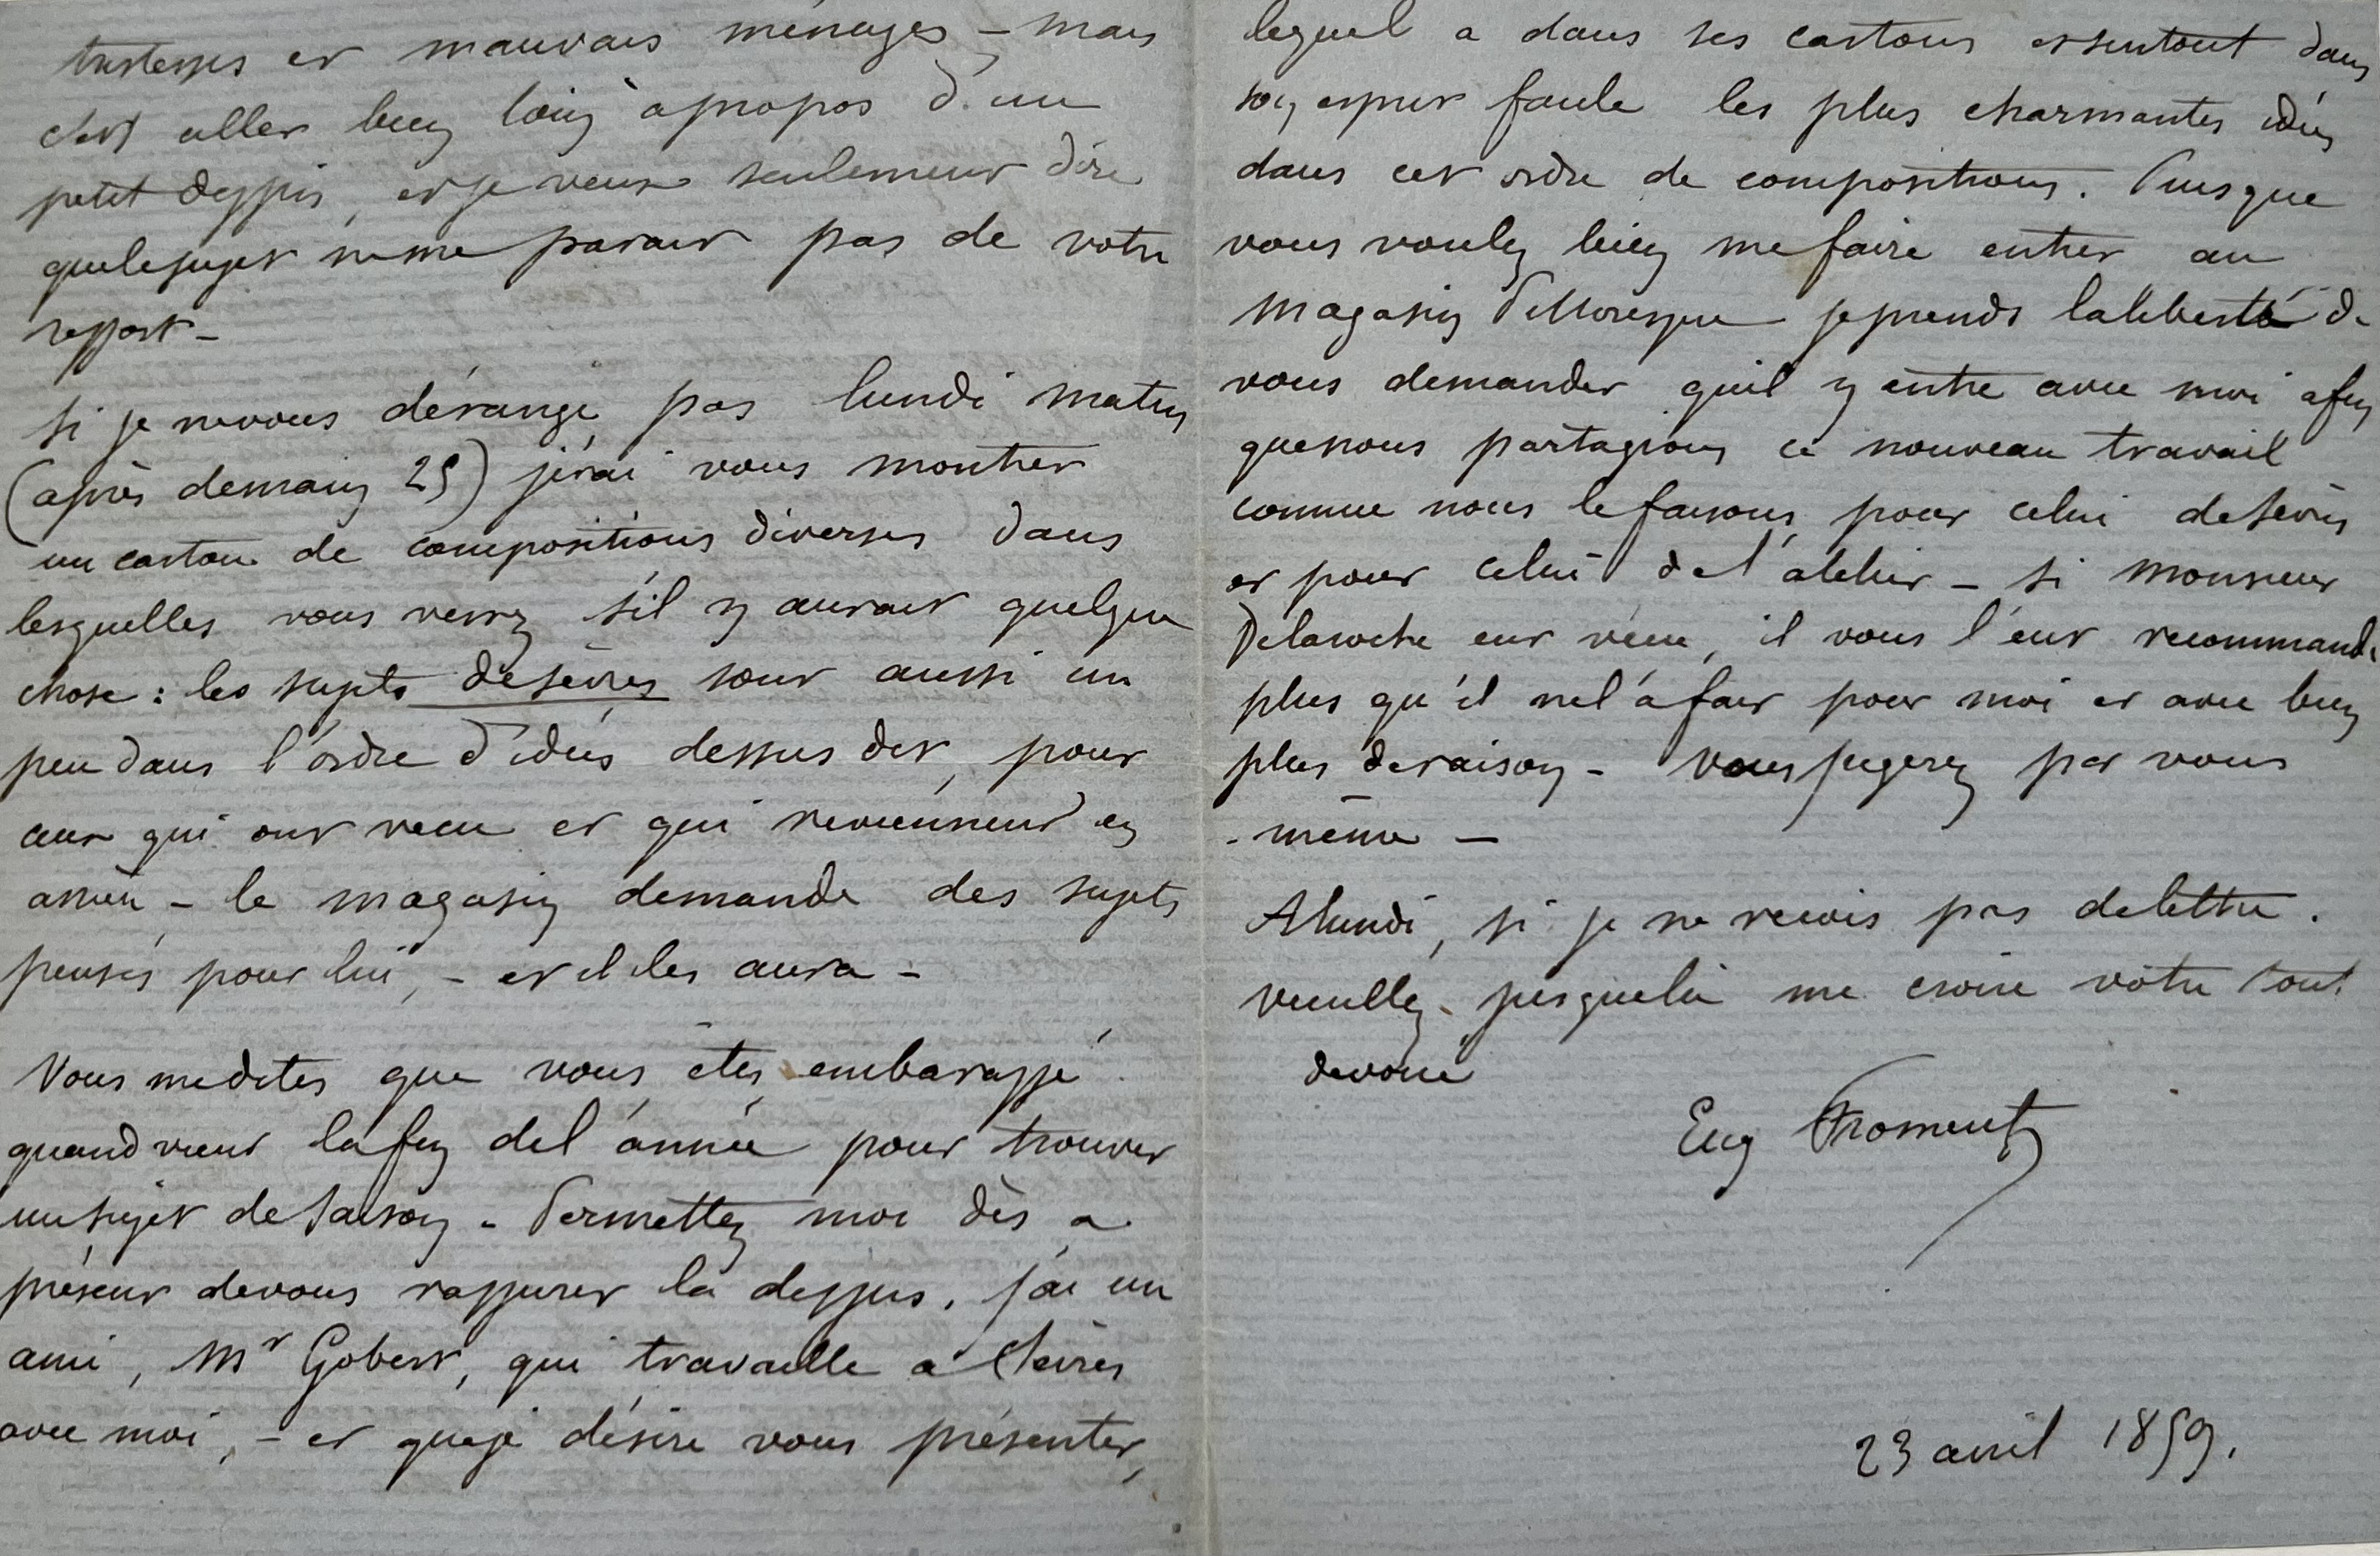 tristesses et mauvais ménages – mais
c'est aller bien loin à propos d'un
petit dessin, et je veux seulement dire
que le sujet ne me parait pas de votre
ressort –
si je ne vous dérange pas lundi matin
(après demain 25) j'irai vous montrer
un carton de compositions diverses dans
lesquelles vous verrez s'il y aurait quelque
chose : les sujets de sèvres sont aussi un
peu dans l'ordre d'idées dessus dit, pour
ceux qui ont vécu et qui reviennent en
arrière – le magasin demande des sujets
pensés pour lui, – et il les aura –
Vous me dites que vous êtes embarassé
quand vient la fin de l'année pour trouver
un sujet de saison – Permettez moi dès a
présent de vous rassurer la dessus. j'ai un
ami, Mr Gobert, qui travaille a Sèvres
avec moi, – et que je désire vous présenter,
lequel a dans ses cartons et surtout dans
son esprit foule les plus charmantes idées
dans cet ordre de compositions. Puisque
vous voulez bien me faire entrer au
magasin Pittoresque je prends la liberté de
vous demander qu'il y entre avec moi afin
que nous partagions ce nouveau travail
comme nous le faisons pour celui de sèvres
et pour celui de l'atelier – si monsieur
Delaroche eut vécu, il vous l'eut recommandé
plus qu'il ne l'a fait pour moi et avec bien
plus de raison – vous jugerez par vous
- même –
A lundi, si je ne recois pas de lettre.
veuillez jusque là me croire votre tout
devoué
Eug Froment
23 avril 1859.